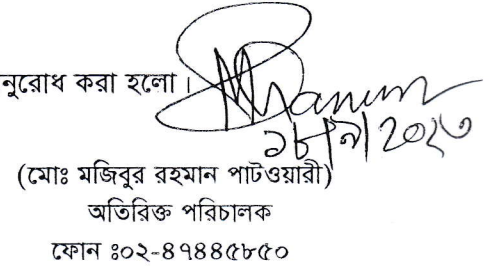 নুরোধ করা হলো।
১৮/৭/২০২৩
(মোঃ মজিবুর রহমান পাটওয়ারী)
অতিরিক্ত পরিচালক
ফোন ঃ০২-৪৭৪৪৫৮৫০